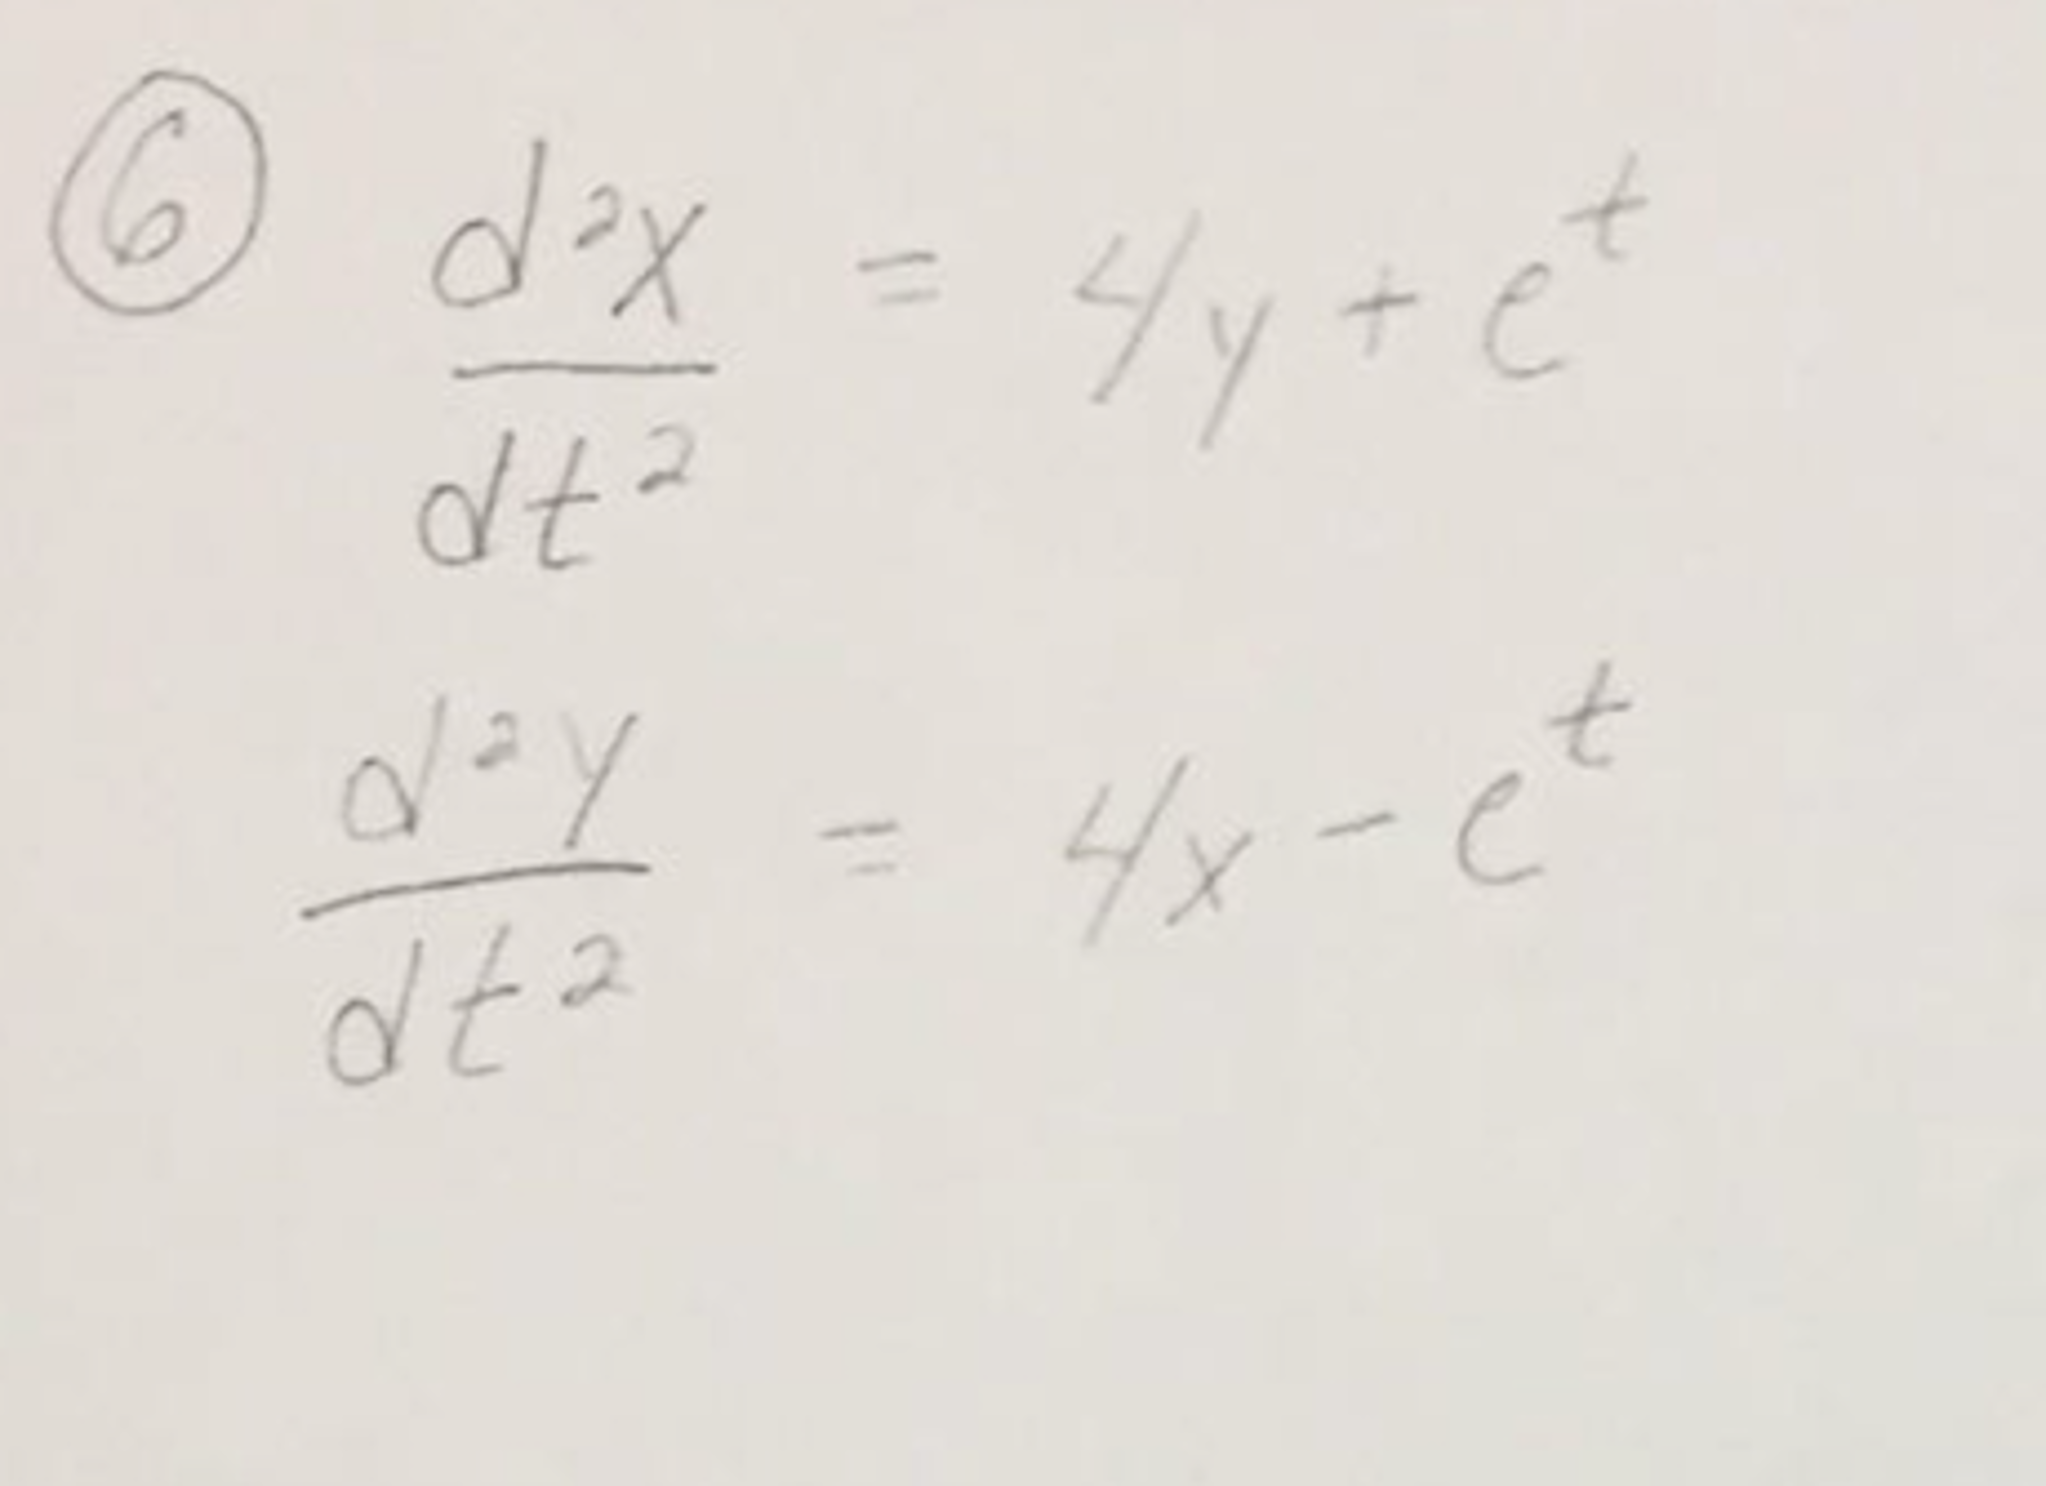 ⑥ d²x/dt² = 4y + e^t
d²y/dt² = 4x - e^t